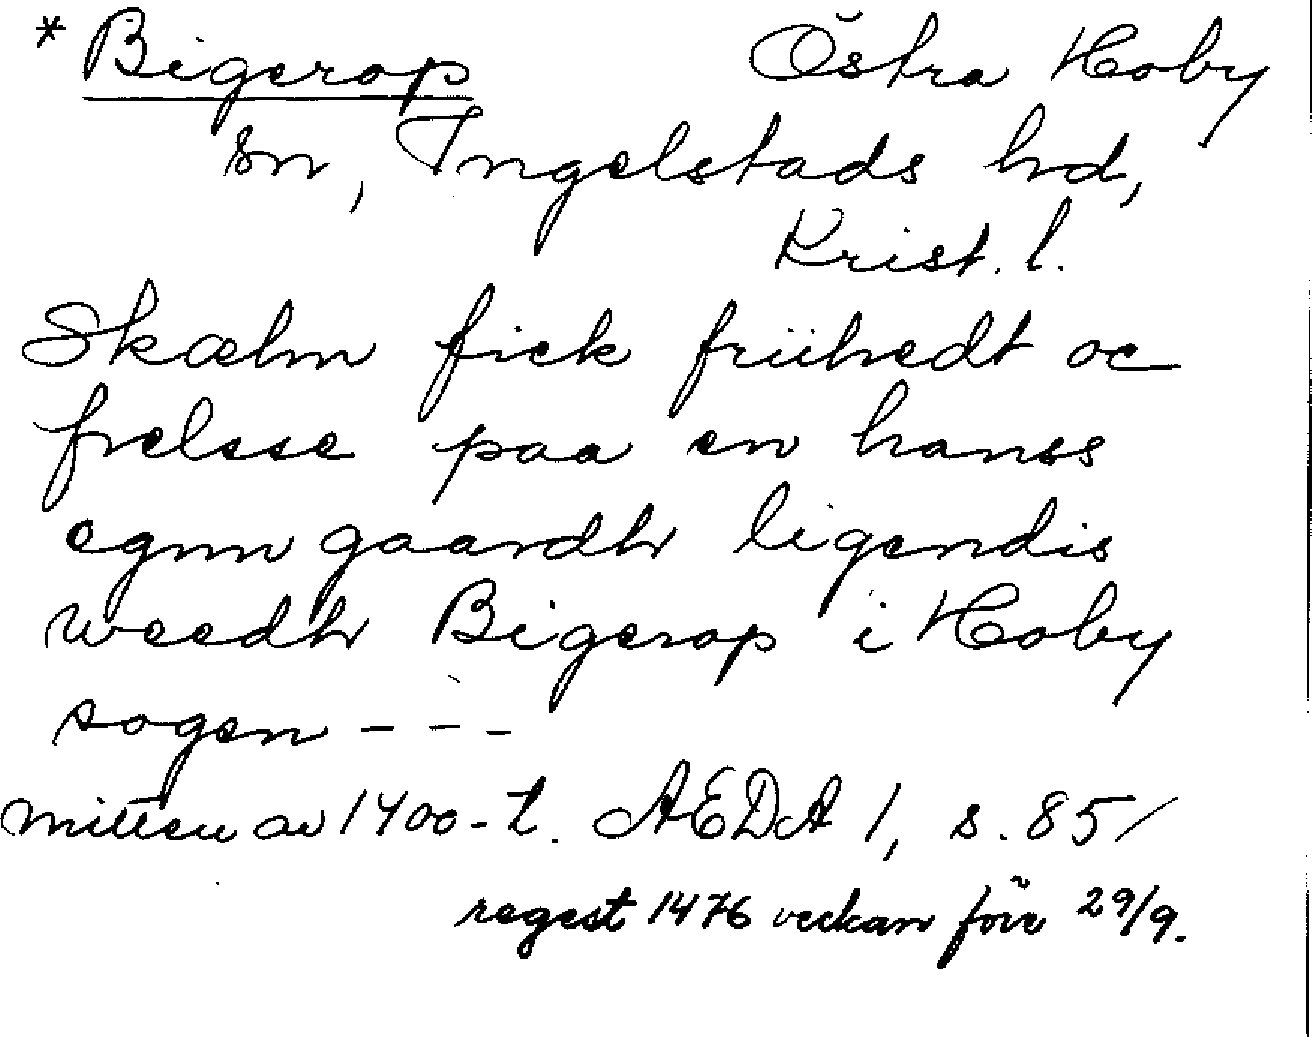 * Bigerop Östra Hoby
sn, Ingelstads hd,
Krist. l.
Skælm fick friihedt oc
frelsse paa en hanss
egnn gaardh ligendis
weedh Bigerop i Hoby
sogen - - -
mitten av 1400-t. AEDA 1, s. 85
regest 1476 veckan före 29/9.